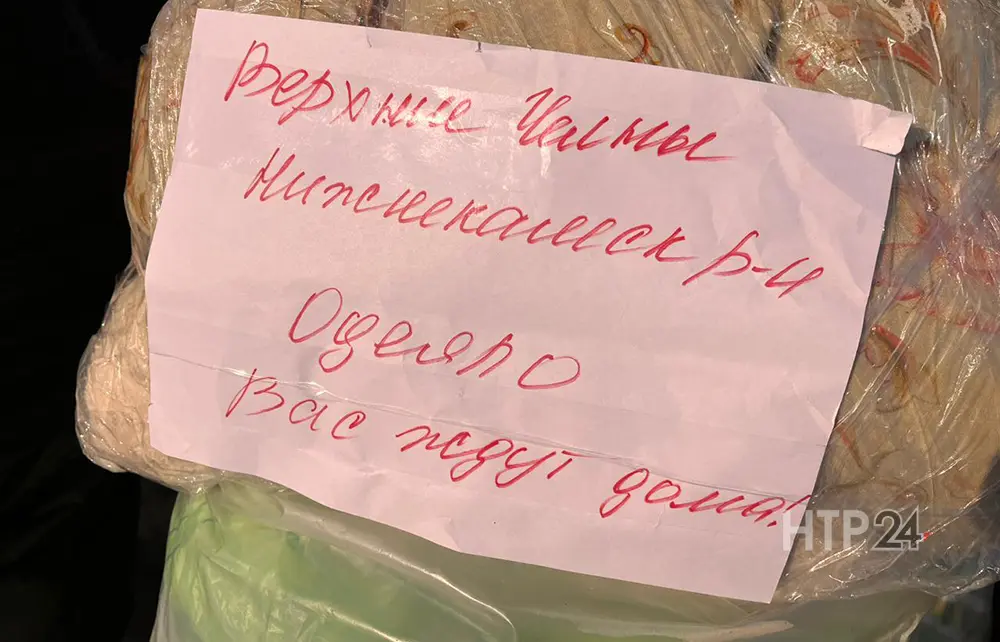 Верхние Челны
Нижнекамск р-н
Одеяло
Вас ждут дома!
НТР24